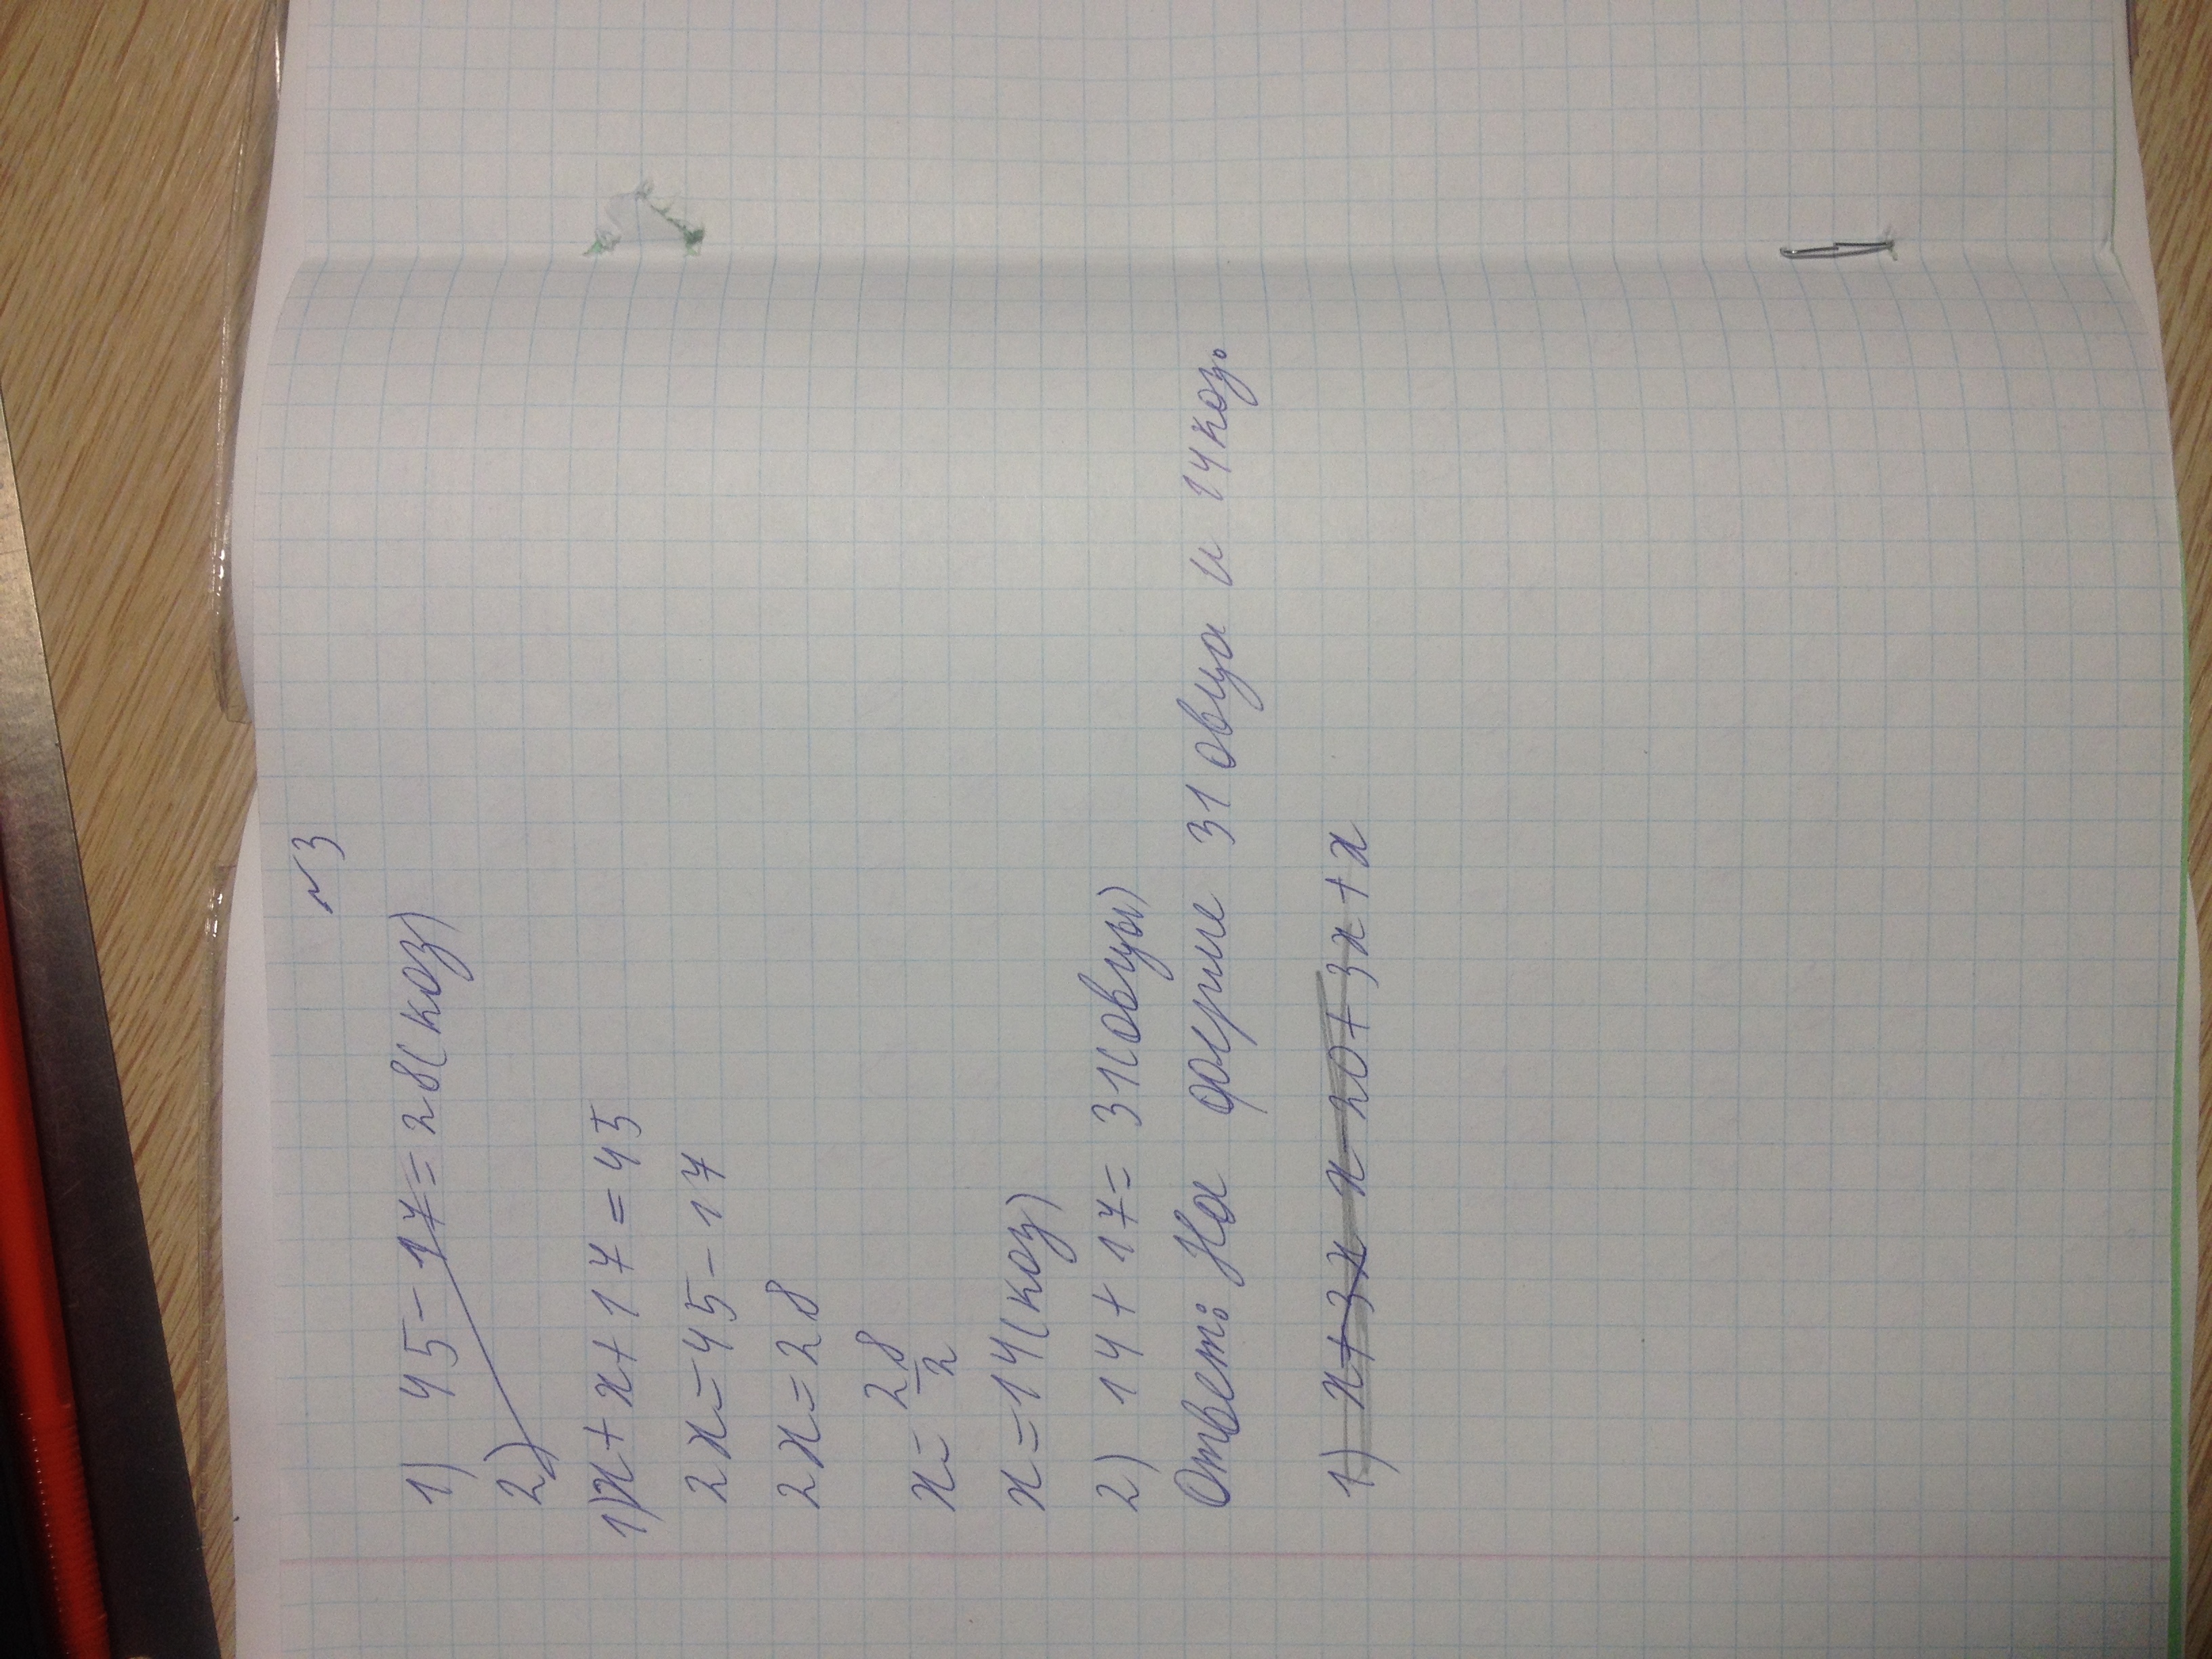 №3
1) 45-17=28(коз)
2)
1)x+x+17=45
2x=45-17
2x=28
x=28/2
x=14(коз)
2) 14+17=31(овцы)
Ответ: На ферме 31 овца и 14 коз.
1) x+3x x-20+3x+x